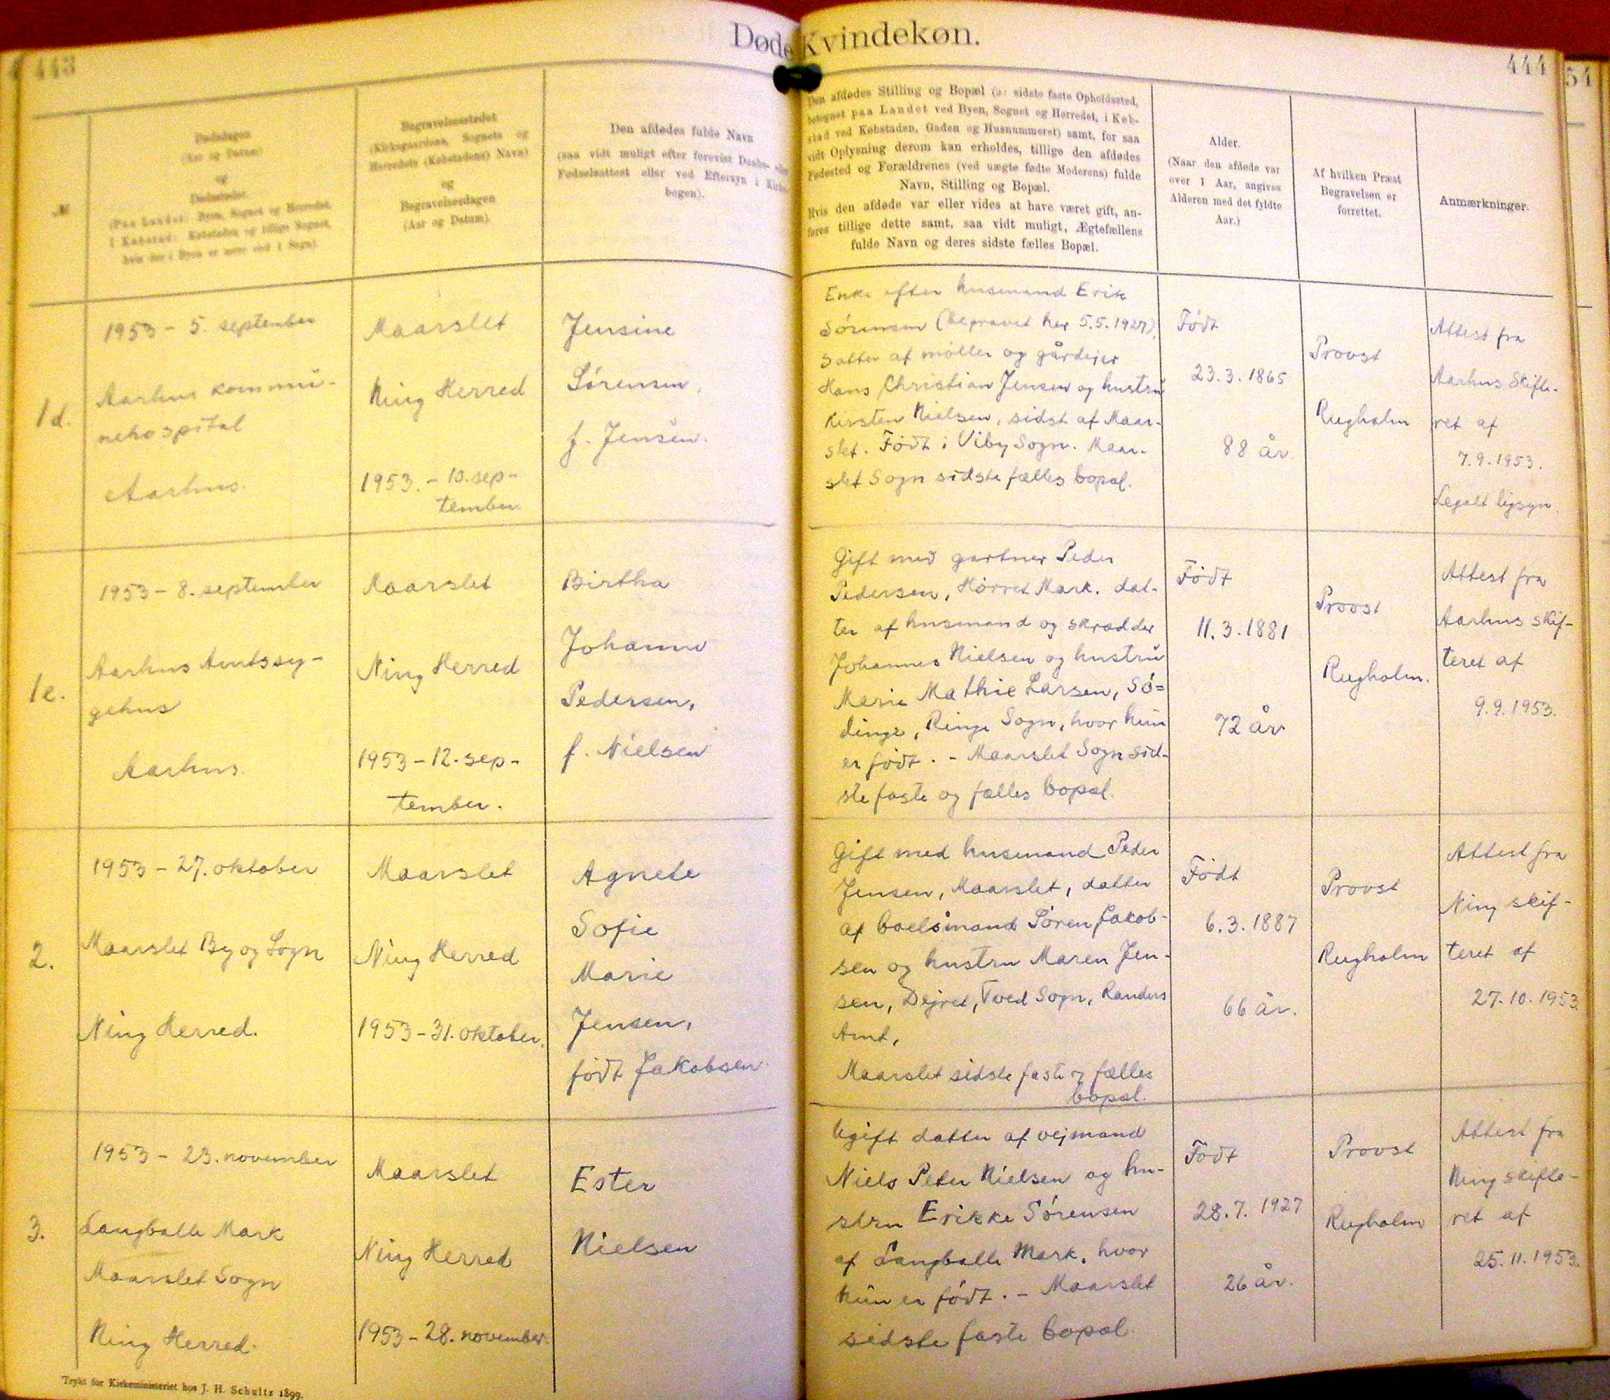 443
Døde Kvindekøn.
444
54
№
Dødsdagen
(Aar og Datum)
og
Dødsstedet.
(Paa Landet: Byen, Sognet og Herredet,
I Købstad: Købstaden og tillige Sognet,
hvis der i Byen er mere end 1 Sogn).
Begravelsesstedet
(Kirkegaardens, Sognets og
Herredets (Købstadens) Navn)
og
Begravelsesdagen
(Aar og Datum).
Den afdødes fulde Navn
(saa vidt muligt efter forevist Daabs- eller
Fødselsattest eller ved Eftersyn i Kirke-
bogen).
Den afdødes Stilling og Bopæl (o: sidste faste Opholdssted,
betegnet paa Landet ved Byen, Sognet og Herredet, i Køb-
stad ved Købstaden, Gaden og Husnummeret) samt, for saa
vidt Oplysning derom kan erholdes, tillige den afdødes
Fødested og Forældrenes (ved uægte fødte Moderens) fulde
Navn, Stilling og Bopæl.
Hvis den afdøde var eller vides at have været gift, an-
føres tillige dette samt, saa vidt muligt, Ægtefællens
fulde Navn og deres sidste fælles Bopæl.
Alder.
(Naar den afdøde var
over 1 Aar, angives
Alderen med det fyldte
Aar.)
Af hvilken Præst
Begravelsen er
forrettet.
Anmærkninger.
1d.
1953 - 5. september
Aarhus kommu-
nehospital
Aarhus.
Maarslet
Ning Herred
1953. - 10. sep-
tember.
Jensine
Sørensen,
f. Jensen.
Enke efter husmand Erik
Sørensen (begravet her 5.5.1927),
datter af møller og gårdejer
Hans Christian Jensen og hustru
Kirsten Nielsen, sidst af Maar-
slet. Født i Viby Sogn. Maar-
slet Sogn sidste fælles bopæl.
Født
23.3.1865
88 år
Provst
Rugholm
Attest fra
Aarhus Skifte-
ret af
7.9.1953.
Legalt ligsyn.
1e.
1953 - 8. september
Aarhus Amtssy-
gehus
Aarhus.
Maarslet
Ning Herred
1953 - 12. sep-
tember.
Birtha
Johanne
Pedersen,
f. Nielsen
Gift med gartner Peder
Pedersen, Hørret Mark. dat-
ter af husmand og skrædder
Johannes Nielsen og hustru
Marie Mathie Larsen, Sø-
dinge, Ringe Sogn, hvor hun
er født. - Maarslet Sogn sid-
ste faste og fælles bopæl.
Født
11.3.1881
72 år
Provst
Rugholm.
Attest fra
Aarhus skif-
teret af
9.9.1953.
2.
1953 - 27. oktober
Maarslet By og Sogn
Ning Herred.
Maarslet
Ning Herred
1953 - 31. oktober.
Agnete
Sofie
Marie
Jensen,
født Jakobsen
Gift med husmand Peder
Jensen, Maarslet, datter
af boelsmand Søren Jakob-
sen og hustru Maren Jen-
sen, Dejret, Tved Sogn, Randers
Amt,
Maarslet sidste faste og fælles
bopæl.
Født
6.3.1887
66 år.
Provst
Rugholm
Attest fra
Ning skif-
teret af
27.10.1953.
3.
1953 - 23. november
Langballe Mark
Maarslet Sogn
Ning Herred.
Maarslet
Ning Herred
1953 - 28. november.
Ester
Nielsen
Ugift datter af vejmand
Niels Peter Nielsen og hu-
stru Erikke Sørensen
af Langballe Mark, hvor
hun er født. - Maarslet
sidste faste bopæl.
Født
28.7.1927
26 år.
Provst
Rugholm
Attest fra
Ning skifte-
ret af
25.11.1953.
Trykt for Kirkeministeriet hos J. H. Schultz 1899.